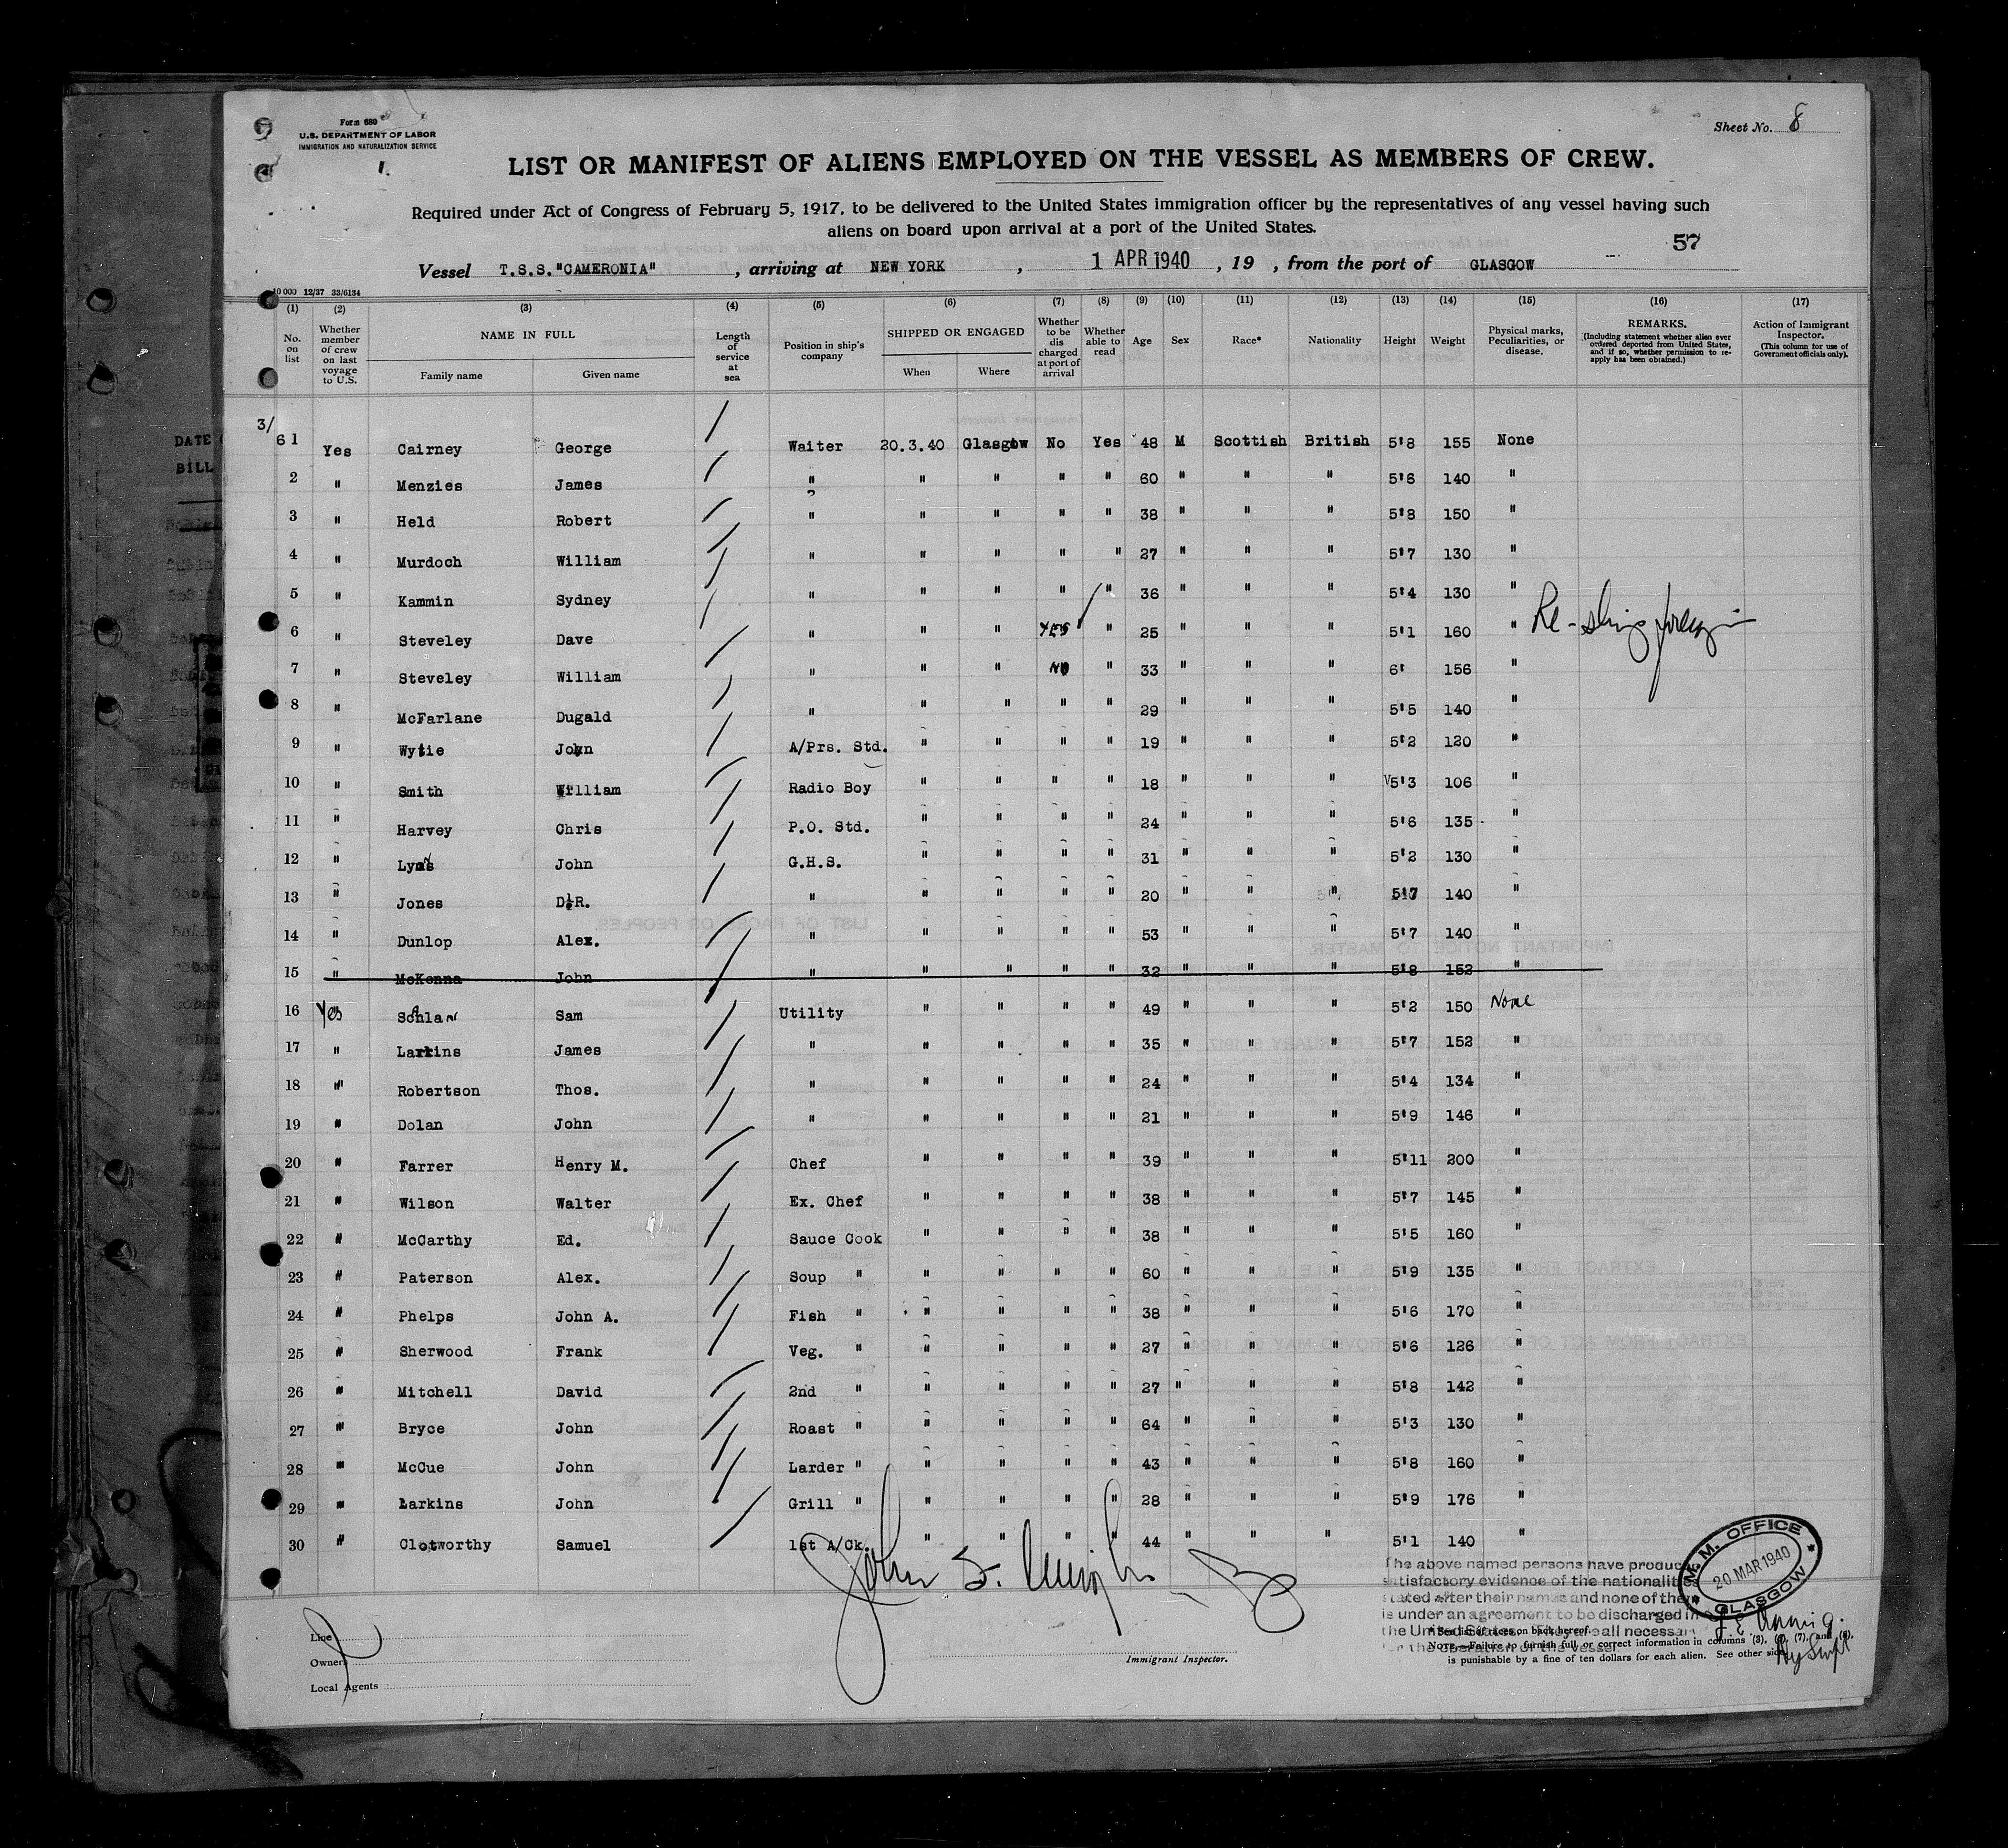 Form 680
U.S. DEPARTMENT OF LABOR
IMMIGRATION AND NATURALIZATION SERVICE
Sheet No. 8
LIST OR MANIFEST OF ALIENS EMPLOYED ON THE VESSEL AS MEMBERS OF CREW.
Required under Act of Congress of February 5, 1917, to be delivered to the United States immigration officer by the representatives of any vessel having such
aliens on board upon arrival at a port of the United States.
57
Vessel T.S.S."CAMERONIA", arriving at NEW YORK, 1 APR 1940, 19 , from the port of GLASGOW
10 000 12/37 33/6134
(1) (2) (3) (4) (5) (6) (7) (8) (9) (10) (11) (12) (13) (14) (15) (16) (17)
No. on list
Whether member of crew on last voyage to U.S.
NAME IN FULL
Family name
Given name
Length of service at sea
Position in ship's company
SHIPPED OR ENGAGED
When
Where
Whether to be dis charged at port of arrival
Whether able to read
Age
Sex
Race*
Nationality
Height
Weight
Physical marks, Peculiarities, or disease.
REMARKS.
(Including statement whether alien ever ordered deported from United States, and if so, whether permission to re-apply has been obtained.)
Action of Immigrant Inspector.
(This column for use of Government officials only).
3/
6 1 Yes Cairney George Waiter 20.3.40 Glasgow No Yes 48 M Scottish British 5'8 155 None
2 " Menzies James " " " " " 60 " " " 5'6 140 "
3 " Held Robert " " " " " 38 " " " 5'8 150 "
4 " Murdoch William " " " " " 27 " " " 5'7 130 "
5 " Kammin Sydney " " " " " 36 " " " 5'4 130 "
6 " Steveley Dave " " " YES " 25 " " " 5'1 160 "
7 " Steveley William " " " NO " 33 " " " 6' 156 "
8 " McFarlane Dugald " " " " " 29 " " " 5'5 140 "
9 " Wylie John A/Prs. Std. " " " " 19 " " " 5'2 120 "
10 " Smith William Radio Boy " " " " 18 " " " 5'3 106 "
11 " Harvey Chris P.O. Std. " " " " 24 " " " 5'6 135 "
12 " John G.H.S. " " " " 31 " " " 5'2 130 "
13 " Jones D.R. " " " " " 20 " " " 5'7 140 "
14 " Dunlop Alex. " " " " " 53 " " " 5'7 140 "
15 " McKenna John " " " " " 32 " " " 5'8 152 "
16 Yes Sam Utility " " " " 49 " " " 5'2 150 None
17 " Larkins James " " " " " 35 " " " 5'7 152 "
18 " Robertson Thos. " " " " " 24 " " " 5'4 134 "
19 " Dolan John " " " " " 21 " " " 5'9 146 "
20 " Farrer Henry M. Chef " " " " 39 " " " 5'11 200 "
21 " Wilson Walter Ex. Chef " " " " 38 " " " 5'7 145 "
22 " McCarthy Ed. Sauce Cook " " " " 38 " " " 5'5 160 "
23 " Paterson Alex. Soup " " " " " 60 " " " 5'9 135 "
24 " Phelps John A. Fish " " " " " 38 " " " 5'6 170 "
25 " Sherwood Frank Veg. " " " " " 27 " " " 5'6 126 "
26 " Mitchell David 2nd " " " " " 27 " " " 5'8 142 "
27 " Bryce John Roast " " " " " 64 " " " 5'3 130 "
28 " McCue John Larder " " " " " 43 " " " 5'8 160 "
29 " Larkins John Grill " " " " " 28 " " " 5'9 176 "
30 " Clotworthy Samuel 1st A/Ck. " " " " 44 " " " 5'1 140 "
The above named persons have produced
satisfactory evidence of the nationalities
stated after their names and none of them
is under an agreement to be discharged in
the United States. They are all necessary
for the operation of the vessel
M. M. OFFICE
20 MAR 1940
GLASGOW
Line
Owners
Local Agents
Immigrant Inspector.
* See list of races on back hereof.
NOTE.—Failure to furnish full or correct information in columns (3), (6), (7), and (8), is punishable by a fine of ten dollars for each alien. See other side.